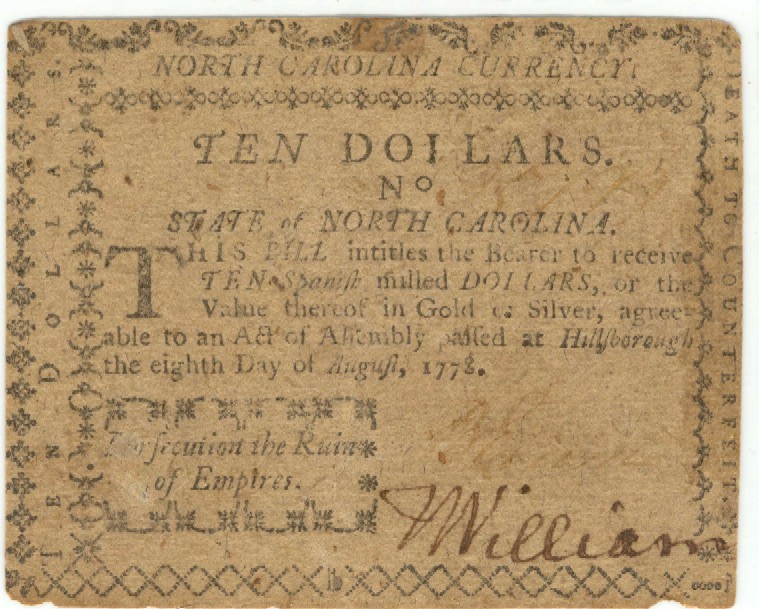 NORTH CAROLINA CURRENCY.
TEN DOLLARS.
No
STATE of NORTH CAROLINA.
THIS BILL intitles the Bearer to receive
TEN Spanish milled DOLLARS, or the
Value thereof in Gold or Silver, agree-
able to an Act of Aſſembly paſſed at Hillſborough
the eighth Day of Auguſt, 1778.
Perſecution the Ruin
of Empires.
TEN DOLLARS.
DEATH TO COUNTERFEIT.
William